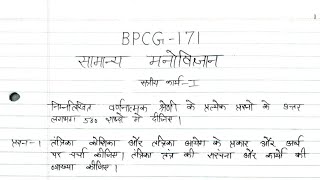 BPCG-171
सामान्य मनोविज्ञान
सत्रीय कार्य-I
निम्नलिखित वर्णनात्मक श्रेणी के प्रत्येक प्रश्नो के उत्तर
लगभग 500 शब्दो में दीजिए।
प्रश्न-1 तंत्रिका कोशिका और तंत्रिका आवेग के प्रकार और कार्य
पर चर्चा कीजिए। तंत्रिका तंत्र की संरचना और कार्यो की
व्याख्या कीजिए।